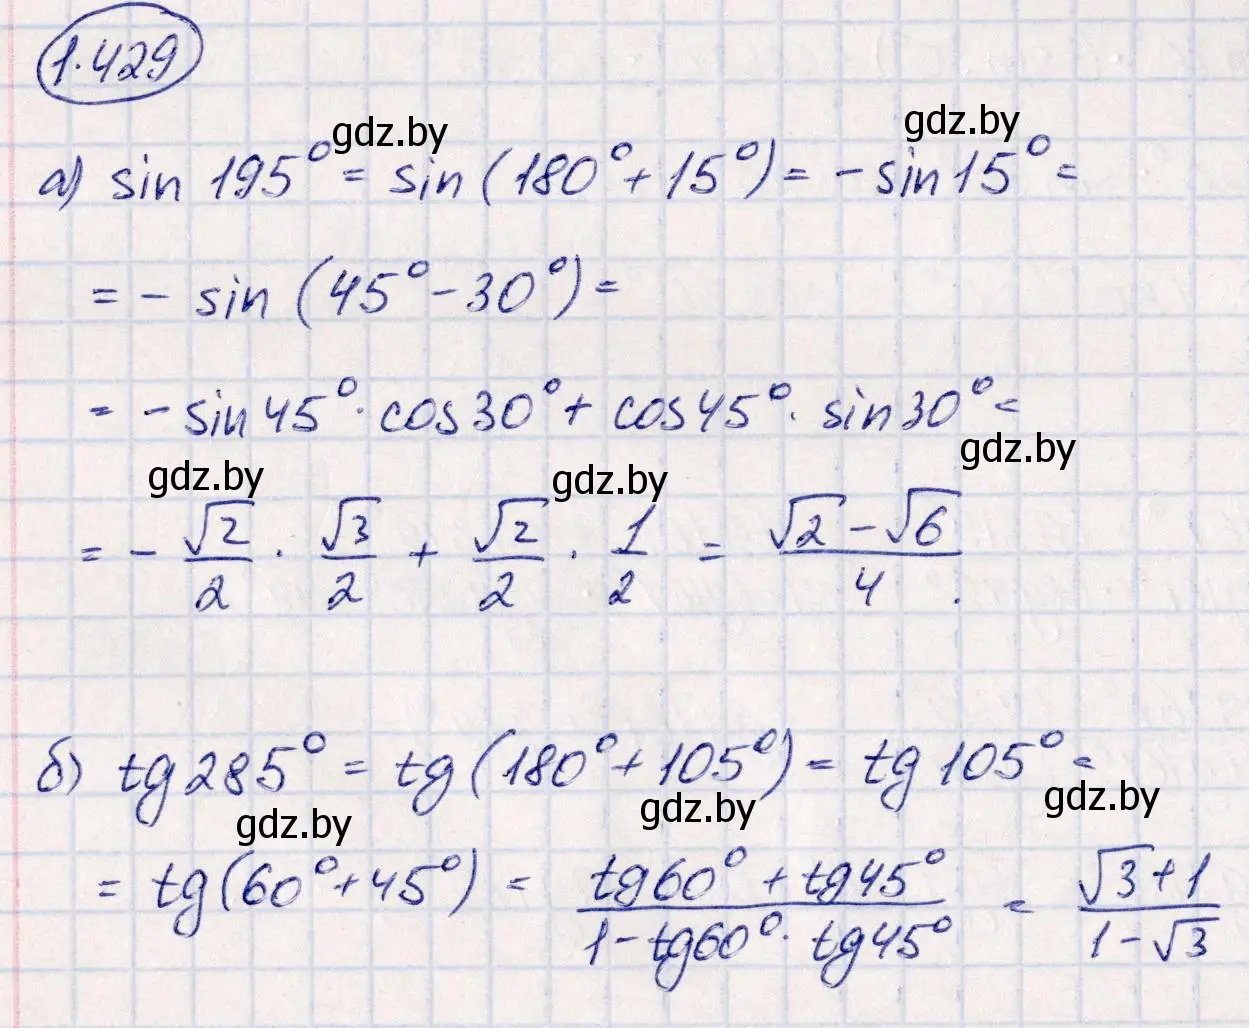 1.429
gdz.by
gdz.by
а) sin 195° = sin (180° + 15°) = - sin 15° =
= - sin (45° - 30°) =
= - sin 45° · cos 30° + cos 45° · sin 30° =
gdz.by
gdz.by
gdz.by
= - √2/2 · √3/2 + √2/2 · 1/2 = (√2 - √6)/4.
б) tg 285° = tg (180° + 105°) = tg 105° =
gdz.by
gdz.by
gdz.by
= tg (60° + 45°) = (tg 60° + tg 45°)/(1 - tg 60° · tg 45°) = (√3 + 1)/(1 - √3)